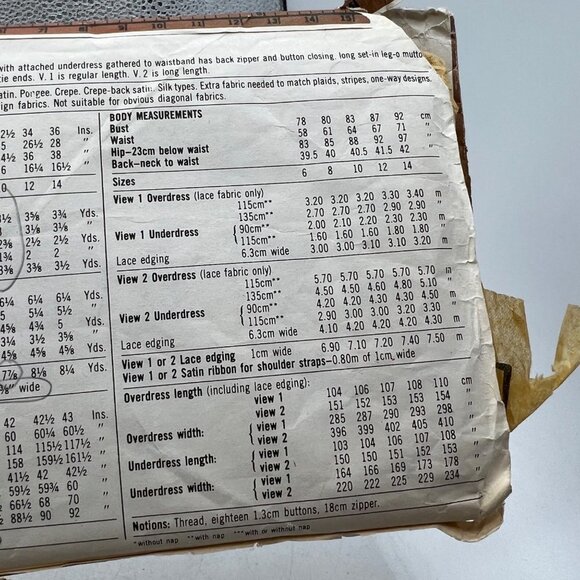 with attached underdress gathered to waistband has back zipper and button closing, long set-in leg-o mutto
tie ends. V. 1 is regular length. V. 2 is long length.
atin. Pongee. Crepe. Crepe-back satin. Silk types. Extra fabric needed to match plaids, stripes, one-way designs,
ign fabrics. Not suitable for obvious diagonal fabrics.
2½ 34 36 Ins.
5 26½ 28 "
4½ 36 38 "
6 16¼ 16½ "
0 12 14
3½ 3⅝ 3¾ Yds.
3⅛ 3⅛ "
2⅜ 2½ 2½ Yds.
1¾ 2 2 "
3⅜ 3⅜ 3½ Yds.
6¼ 6¼ 6¼ Yds.
5 5¼ 5½ "
4⅝ 4¾ 5 Yds.
3¼ 3½ 3⅝ "
4⅝ 4⅝ 4⅝ Yds.
7⅞ 8⅛ 8¼ Yds.
⅜" wide
42 42½ 43 Ins.
60 60¼ 60½ "
114 115½ 117½ "
158 159½ 161½ "
41½ 42 42½ "
59½ 59¾ 60 "
66½ 68 70 "
88½ 90 92 "
BODY MEASUREMENTS
Bust 78 80 83 87 92 cm
Waist 58 61 64 67 71 "
Hip-23cm below waist 83 85 88 92 97 "
Back-neck to waist 39.5 40 40.5 41.5 42 "
Sizes 6 8 10 12 14
View 1 Overdress (lace fabric only)
115cm** 3.20 3.20 3.30 3.30 3.40 m
135cm** 2.70 2.70 2.70 2.90 2.90 "
View 1 Underdress { 90cm** 2.00 2.10 2.20 2.30 2.30 m
115cm** 1.60 1.60 1.60 1.80 1.80 "
Lace edging 6.3cm wide 3.00 3.00 3.10 3.10 3.20 m
View 2 Overdress (lace fabric only)
115cm** 5.70 5.70 5.70 5.70 5.70 m
135cm** 4.50 4.50 4.60 4.80 5.10 "
View 2 Underdress { 90cm** 4.20 4.20 4.30 4.30 4.50 m
115cm** 2.90 3.00 3.00 3.20 3.30 "
Lace edging 6.3cm wide 4.10 4.20 4.20 4.20 4.30 m
View 1 or 2 Lace edging 1cm wide 6.90 7.10 7.20 7.40 7.50 m
View 1 or 2 Satin ribbon for shoulder straps-0.80m of 1cm wide
Overdress length (including lace edging):
view 1 104 106 107 108 110 cm
view 2 151 152 153 153 154 "
Overdress width: { view 1 285 287 290 293 298 "
view 2 396 399 402 405 410 "
Underdress length: { view 1 103 104 106 107 108 "
view 2 150 150 151 152 153 "
Underdress width: { view 1 164 166 169 173 178 "
view 2 220 222 225 229 234 "
Notions: Thread, eighteen 1.3cm buttons, 18cm zipper.
*without nap **with nap ***with or without nap